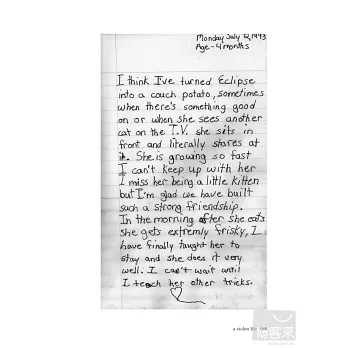 Monday July 12, 1993
Age - 4 months
I think I've turned Eclipse
into a couch potato, sometimes
when there's something good
on or when she sees another
cat on the T.V. she sits in
front and literally stares at
it. She is growing so fast
I can't keep up with her
I miss her being a little kitten
but I'm glad we have built
such a strong friendship.
In the morning after she eats
she gets extremly frisky, I
have finally taught her to
stay and she does it very
well. I can't wait until
I teach her other tricks.
a stolen life
博客來